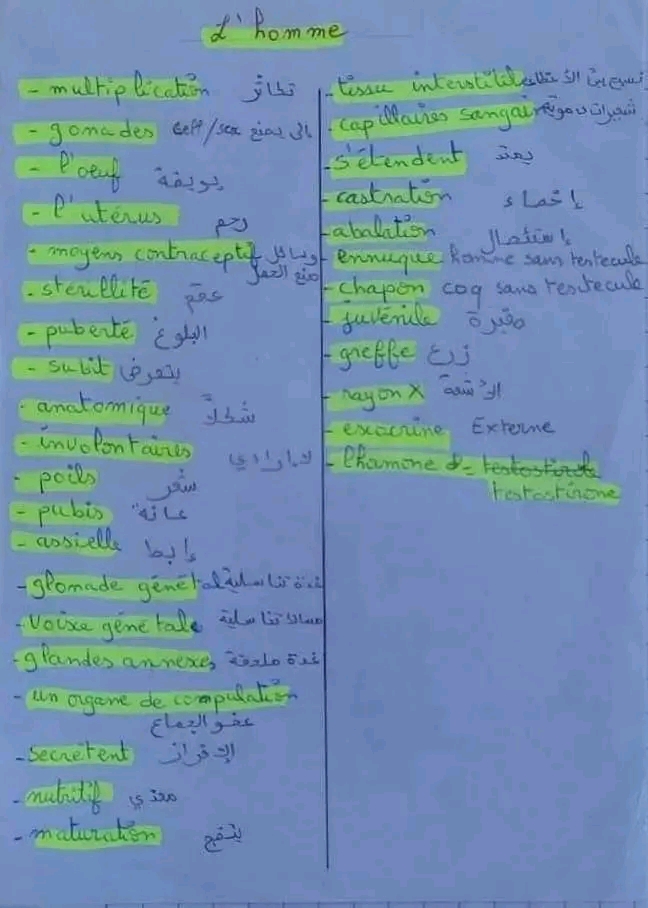 L'homme
- multiplication تكاثر
- gonades
- l'oeuf بويضة
- l'utérus رحم
- moyens contraceptif وسائل منع الحمل
- stérillité عقم
- puberté البلوغ
- subit يتعرض
- anatomique شكلاً
- involontaires لا إرادي
- poils شعر
- pubis عانة
- assielle إبط
- glomade génétal غدة تناسلية
- voixe génétale مسالك تناسلية
- glandes annexes غدة ملحقة
- un organe de compulation
عضو الجماع
- secrètent الإفراز
- nutritif مغذي
- maturation ينضج
- tissu interstitiel نسيج بين
- capillaires sanguin شعيرات دموية
- s'étendent يمتد
- castration إخصاء
- abalation إستئصال
- ennuque homme sans testecule
- chapon coq sans testecule
- juvénile
- greffe زرع
- rayon X الأشعة
- exocrine Externe
- l'hamone de
testostirone